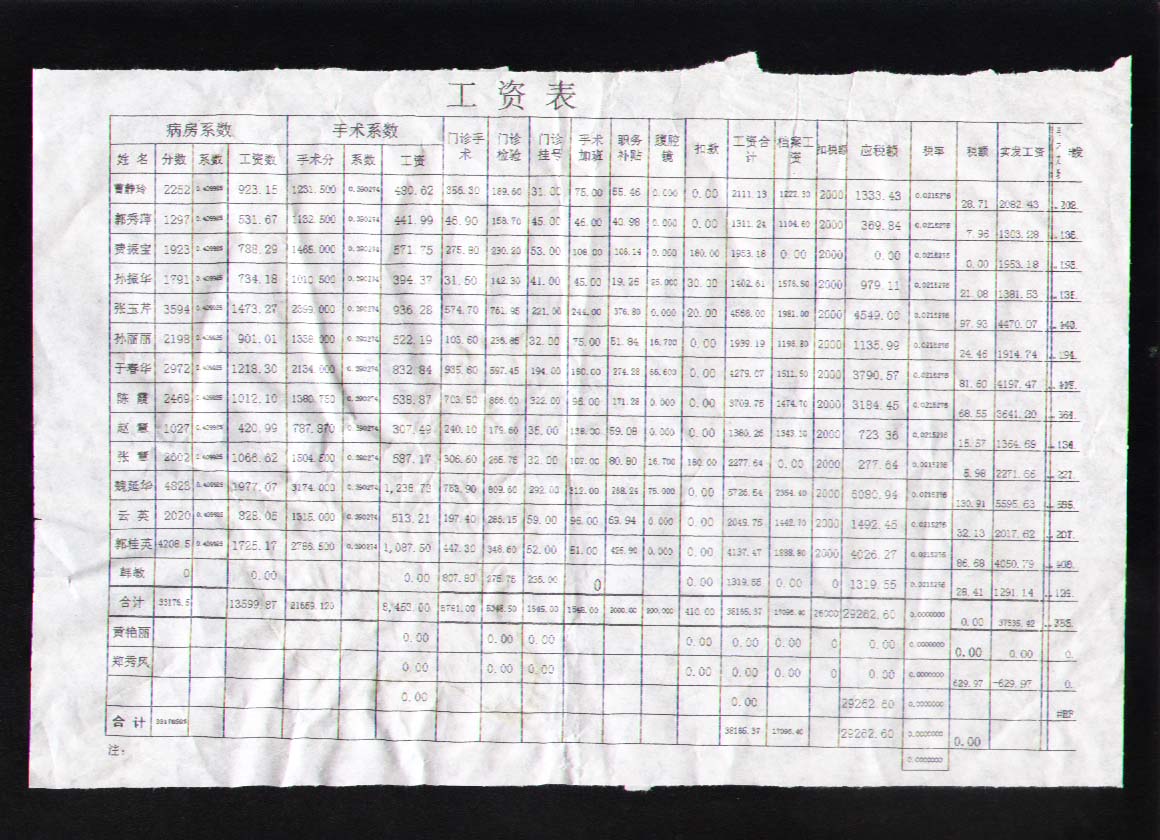 工资表
病房系数 手术系数 门诊手术 门诊检验 门诊挂号 手术加班 职务补贴 腹腔镜 扣款 工资合计 档案工资 扣税额 应税额 税率 税额 实发工资
姓名 分数 系数 工资数 手术分 系数 工资
曹静玲 2252 923.15 1231.500 0.390274 480.62 356.30 189.60 31.00 75.00 55.46 0.000 0.00 2111.13 1222.30 2000 1333.43 0.0215276 28.71 2082.43
郭秀萍 1297 531.67 1132.500 0.390274 441.99 46.90 158.70 45.00 46.00 0.000 0.00 1311.24 1104.60 2000 369.84 0.0215276 7.96 1303.28
费振宝 1923 788.29 1465.000 0.390274 571.75 275.80 230.20 53.00 108.00 106.14 0.000 180.00 1953.18 0.00 2000 0.00 0.0215276 0.00 1953.18
孙振华 1791 734.18 1010.500 0.390274 394.37 31.50 142.30 41.00 45.00 19.25 25.000 30.00 1402.61 1576.50 2000 979.11 0.0215276 21.08 1381.53
张玉芹 3594 1473.27 2399.000 0.390274 936.28 574.70 761.95 221.00 244.00 376.80 0.000 20.00 4568.00 1981.00 2000 4549.00 0.0215276 97.93 4470.07
孙丽丽 2198 901.01 1338.000 0.390274 522.19 103.60 32.00 75.00 51.84 16.700 0.00 1939.19 1196.80 2000 1135.99 0.0215276 24.46 1914.74
于春华 2972 1218.30 2134.000 0.390274 832.84 935.60 597.45 194.00 150.00 274.28 66.600 0.00 4279.07 1511.50 2000 3790.57 0.0215276 81.60 4197.47
陈霞 2469 1012.10 1380.750 0.390274 538.87 703.50 866.00 322.00 95.00 171.28 0.000 0.00 3709.75 1474.70 2000 3184.45 0.0215276 68.55 3641.20
赵慧 1027 420.99 787.870 0.390274 307.49 240.10 179.60 35.00 138.00 59.08 0.000 0.00 1380.26 1343.10 2000 723.36 0.0215276 15.57 1364.69
张慧 2602 1066.62 1504.500 0.390274 587.17 306.60 265.75 32.00 102.00 80.80 16.700 180.00 2277.64 0.00 2000 277.64 0.0215276 5.98 2271.66
魏延华 4823 1977.07 3174.000 0.390274 1,238.73 763.90 809.60 292.00 312.00 258.24 75.000 0.00 5726.54 2354.40 2000 6080.94 0.0215276 130.91 5595.63
云英 2020 828.05 1315.000 0.390274 513.21 197.40 285.15 59.00 96.00 69.94 0.000 0.00 2049.75 1442.70 2000 1492.45 0.0215276 32.13 2017.62
郭桂英 4208.5 1725.17 2786.500 0.390274 1,087.50 447.30 348.60 52.00 51.00 425.90 0.000 0.00 4137.47 1888.80 2000 4026.27 0.0215276 86.68 4050.79
韩敏 0 0.00 0.00 807.80 275.75 236.00 0 0.00 1319.55 0.00 0 1319.55 0.0215276 28.41 1291.14
合计 33176.5 13599.87 21659.120 8,453.00 5791.00 5348.50 1645.00 1545.00 2000.00 200.000 410.00 38185.37 17096.40 26000 29262.60 0.0000000 0.00 37535.42
黄艳丽 0.00 0.00 0.00 0.00 0.00 0.00 0 0.00 0.0000000 0.00 0.00 0
郑秀凤 0.00 0.00 0.00 0.00 0.00 0.00 0 0.00 0.0000000 629.97 -629.97 0
0.00 0.00 29262.60 0.0000000
合计 38185.37 17096.40 29262.60 0.0000000 0.00
注： 0.0000000